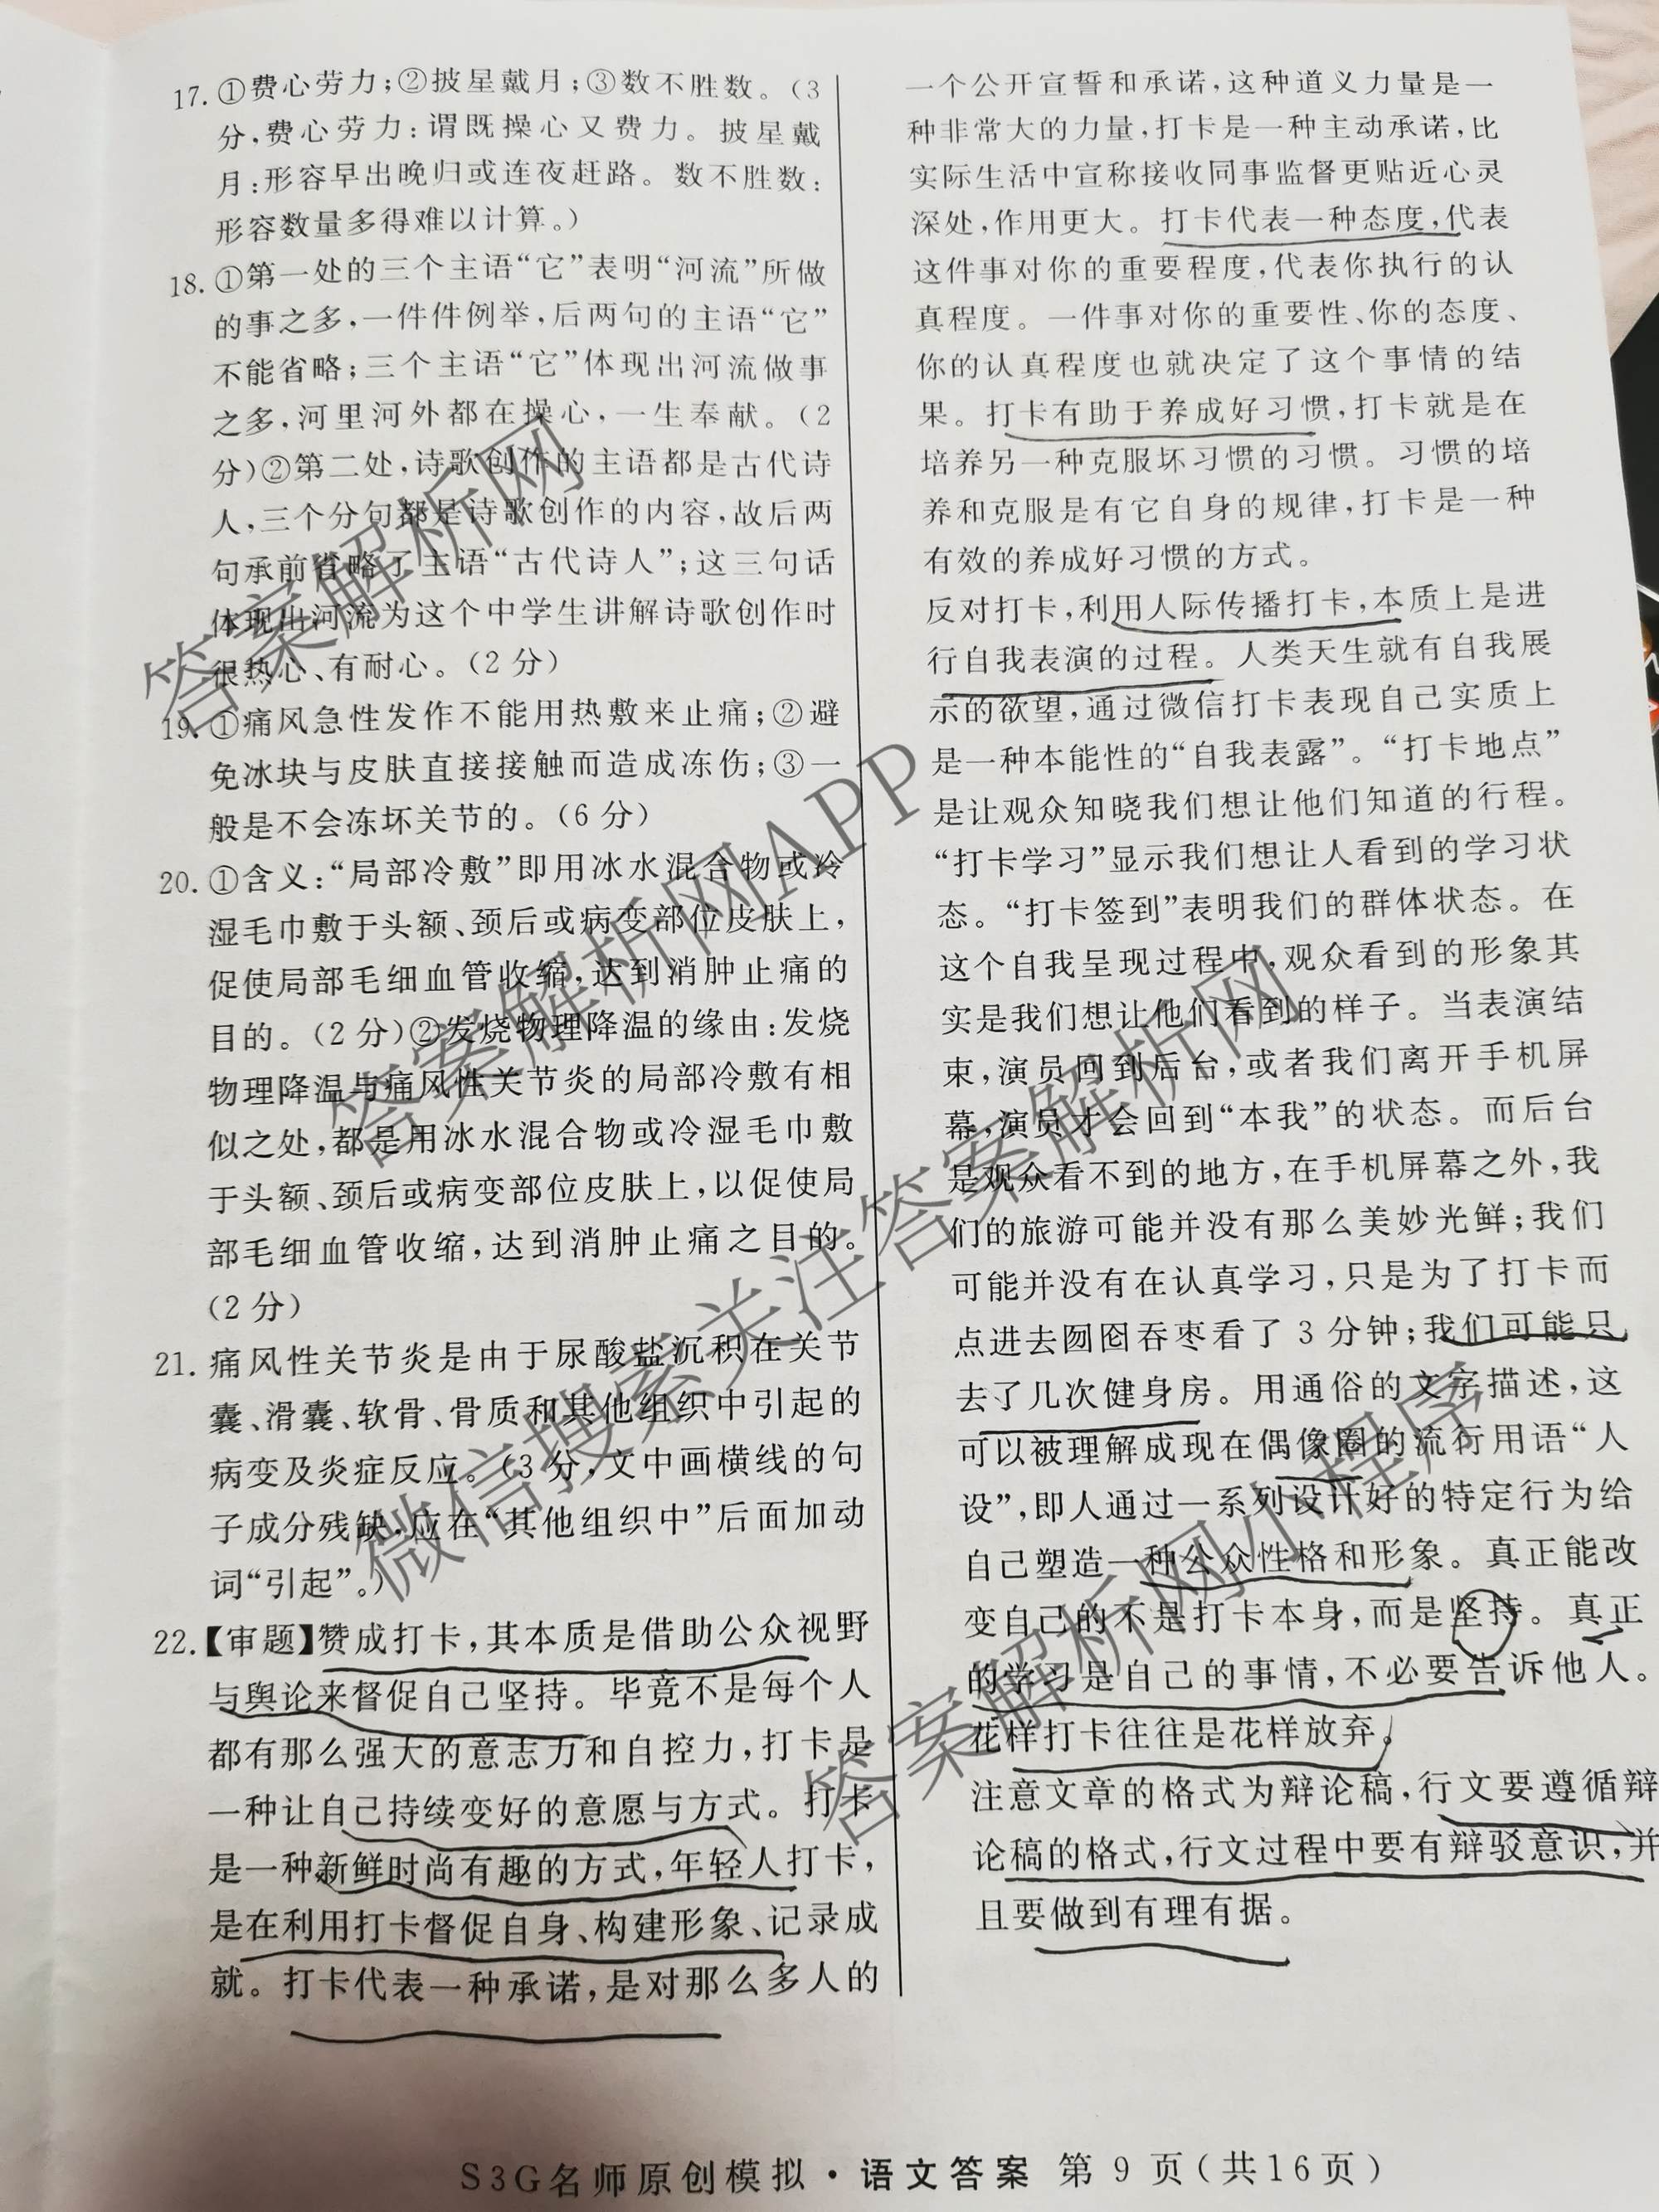 17. ①费心劳力;②披星戴月;③数不胜数。(3
分,费心劳力:谓既操心又费力。披星戴
月:形容早出晚归或连夜赶路。数不胜数:
形容数量多得难以计算。)
18. ①第一处的三个主语“它”表明“河流”所做
的事之多,一件件例举,后两句的主语“它”
不能省略;三个主语“它”体现出河流做事
之多,河里河外都在操心,一生奉献。(2
分)②第二处,诗歌创作的主语都是古代诗
人,三个分句都是诗歌创作的内容,故后两
句承前省略了主语“古代诗人”;这三句话
体现出河流为这个中学生讲解诗歌创作时
很热心、有耐心。(2分)
19. ①痛风急性发作不能用热敷来止痛;②避
免冰块与皮肤直接接触而造成冻伤;③一
般是不会冻坏关节的。(6分)
20. ①含义:“局部冷敷”即用冰水混合物或冷
湿毛巾敷于头额、颈后或病变部位皮肤上,
促使局部毛细血管收缩,达到消肿止痛的
目的。(2分)②发烧物理降温的缘由:发烧
物理降温与痛风性关节炎的局部冷敷有相
似之处,都是用冰水混合物或冷湿毛巾敷
于头额、颈后或病变部位皮肤上,以促使局
部毛细血管收缩,达到消肿止痛之目的。
(2分)
21. 痛风性关节炎是由于尿酸盐沉积在关节
囊、滑囊、软骨、骨质和其他组织中引起的
病变及炎症反应。(3分,文中画横线的句
子成分残缺,应在“其他组织中”后面加动
词“引起”。)
22.【审题】赞成打卡,其本质是借助公众视野
与舆论来督促自己坚持。毕竟不是每个人
都有那么强大的意志力和自控力,打卡是
一种让自己持续变好的意愿与方式。打卡
是一种新鲜时尚有趣的方式,年轻人打卡,
是在利用打卡督促自身、构建形象、记录成
就。打卡代表一种承诺,是对那么多人的
一个公开宣誓和承诺,这种道义力量是一
种非常大的力量,打卡是一种主动承诺,比
实际生活中宣称接收同事监督更贴近心灵
深处,作用更大。打卡代表一种态度,代表
这件事对你的重要程度,代表你执行的认
真程度。一件事对你的重要性、你的态度、
你的认真程度也就决定了这个事情的结
果。打卡有助于养成好习惯,打卡就是在
培养另一种克服坏习惯的习惯。习惯的培
养和克服是有它自身的规律,打卡是一种
有效的养成好习惯的方式。
反对打卡,利用人际传播打卡,本质上是进
行自我表演的过程。人类天生就有自我展
示的欲望,通过微信打卡表现自己实质上
是一种本能性的“自我表露”。“打卡地点”
是让观众知晓我们想让他们知道的行程。
“打卡学习”显示我们想让人看到的学习状
态。“打卡签到”表明我们的群体状态。在
这个自我呈现过程中,观众看到的形象其
实是我们想让他们看到的样子。当表演结
束,演员回到后台,或者我们离开手机屏
幕,演员才会回到“本我”的状态。而后台
是观众看不到的地方,在手机屏幕之外,我
们的旅游可能并没有那么美妙光鲜;我们
可能并没有在认真学习,只是为了打卡而
点进去囫囵吞枣看了3分钟;我们可能只
去了几次健身房。用通俗的文字描述,这
可以被理解成现在偶像圈的流行用语“人
设”,即人通过一系列设计好的特定行为给
自己塑造一种公众性格和形象。真正能改
变自己的不是打卡本身,而是坚持。真正
的学习是自己的事情,不必要告诉他人。
花样打卡往往是花样放弃。
注意文章的格式为辩论稿,行文要遵循辩
论稿的格式,行文过程中要有辩驳意识,并
且要做到有理有据。
答案解析网
答案解析网APP
微信搜索关注答案解析网
答案解析网小程序
S3G名师原创模拟·语文答案 第9页(共16页)